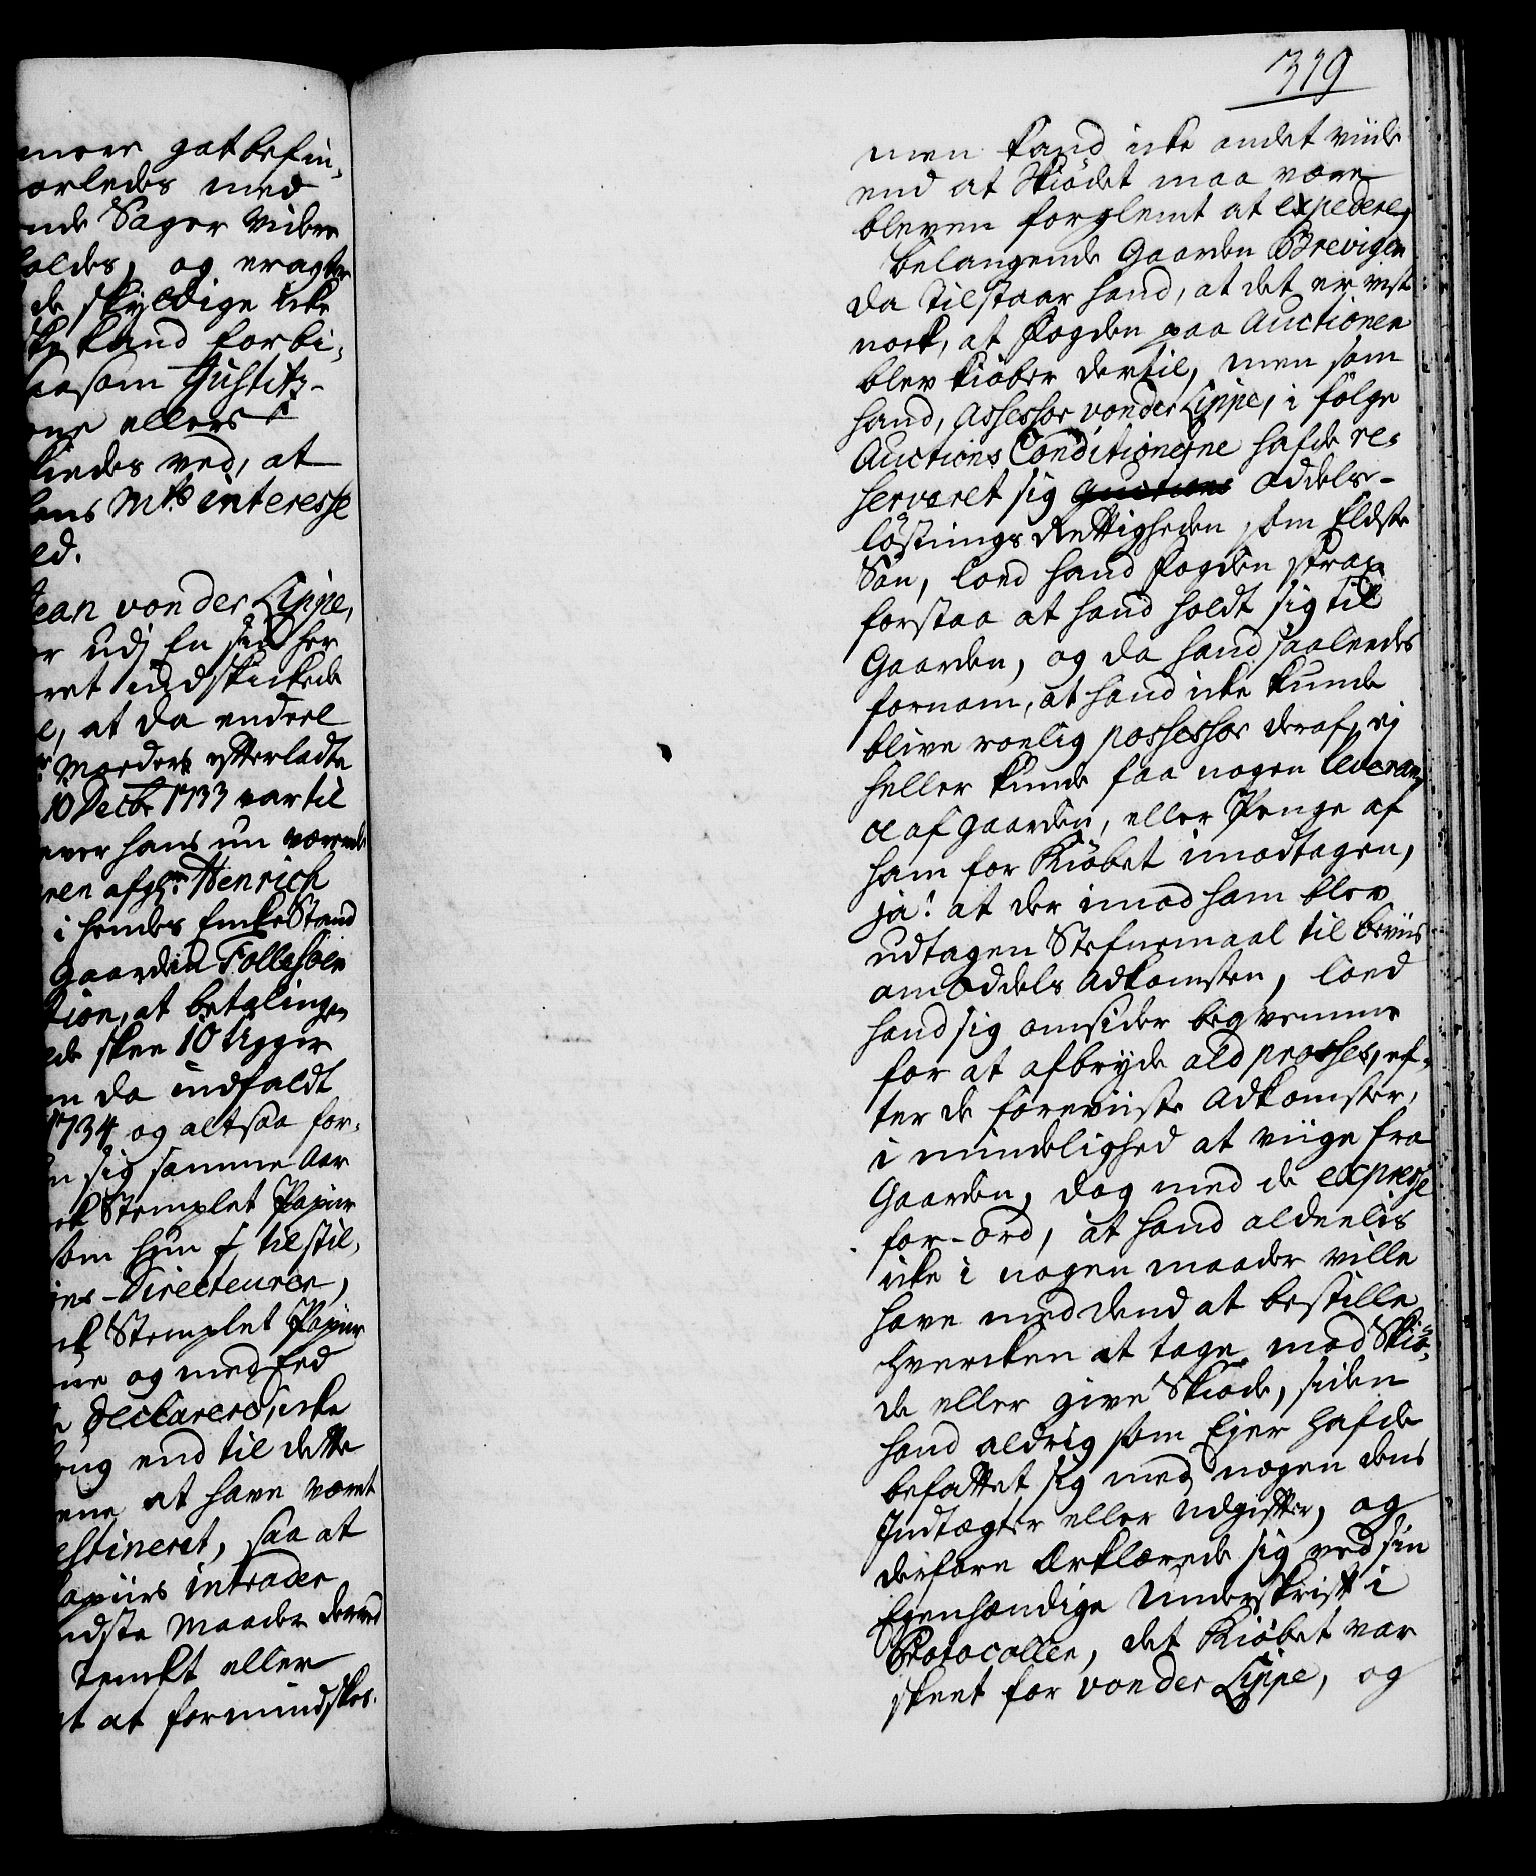 moer got befin,
orledes med
nde Sager videre
oldes, og eragter
de skyldige icke
kand forbi,
saasom Justitz-
ne ellers
liedes ved, at
ens Mts interesse
ed.
Jean von der Lippe,
r udj En sid her
ret indskickede
e, at da endeel
Moeders efterladte
10 Decbr 1733 var til
over hans nu værende
ren afgl: Henrich
i hendes EnkeStand
Gaarden Follesøen
tion, at betalingen
de skee 10 Uger
n da indfaldt
1734 og altsaa for-
n sig samme Aar
ek Stemplet Papiir
som hun f tilstil,
ns-Directeuren,
ek Stemplet Papiir
ne og med Eed
Declarerd, icke
ug end til dette
ene at have været
estineret, saa at
apiirs intrader
ndste Maader derved
tenckt eller
t at formindskes.
319
men kand icke andet viide
end at Skiødet maa være
bleven forglemt at expedere,
belangende Gaarden Brevigen
da Tilstaar hand, at det er vist
nock, at Fogden paa Auctionen
blev kiøber dertil, men som
hand, Assessor von der Lippe, i følge
Auctions Conditionerne hafde re-
serveret sig Auctions Oddels-
løsnings Rettigheden som Eldste
Søn, loed hand Fogden strax
forstaa at hand holdt sig til
Gaarden, og da hand saaleedes
fornam, at hand icke kunde
blive roelig possessor deraf, ej
heller kunde faa nogen leveran-
ce af gaarden, eller Penge af
ham for Kiøbet imodtagen,
ja! at der imod ham blev
udtagen Stefnemaal til beviis
om Oddels Adkomsten, loed
hand sig omsider beqvemme
for at afbryde ald prosses, ef-
ter de foreviiste Adkomster,
i mindelighed at viige fra
Gaarden, dog med de expresse
for-ord, at hand aldeelis
icke i nogen maader ville
have med dend at bestille
hvercken at tage mod Skiø-
de eller give Skiøde, siden
hand aldrig som Ejer hafde
befattet sig med nogen dens
Indtægter eller Udgifter, og
derfore Erklærede sig ved sin
Egenhændige Underskrift i
Protocollen, det Kiøbet var
skeet for von der Lippe, og